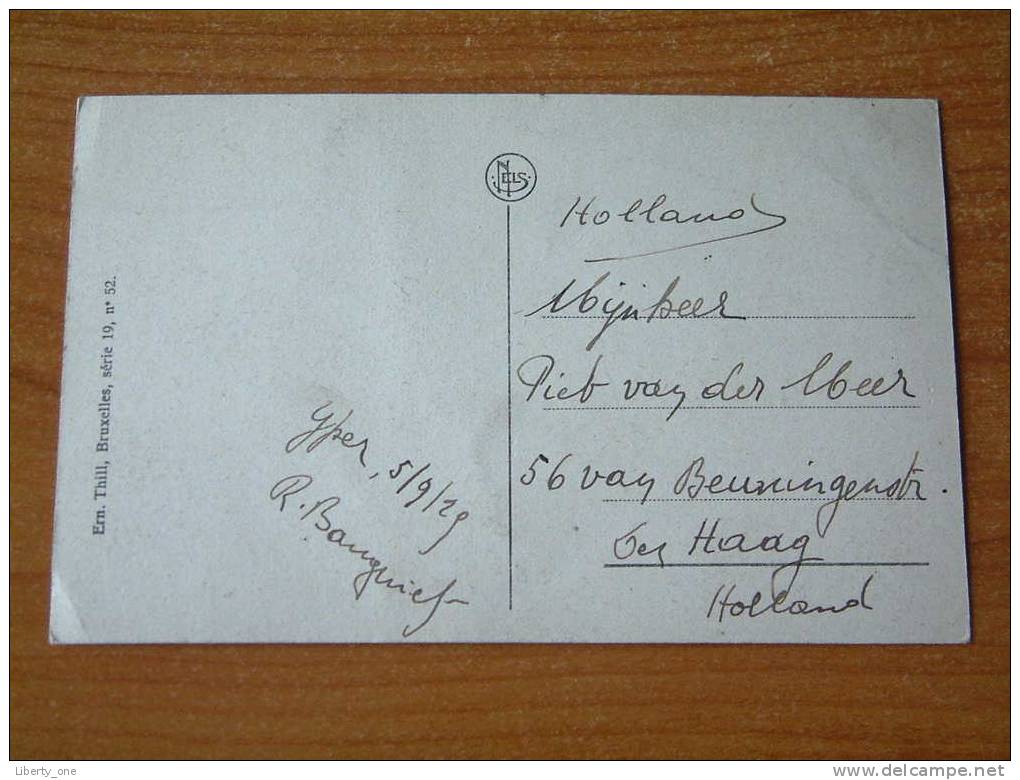 Ern. Thill, Bruxelles, série 19, n° 52.
NELS
Yper, 5/9/29
R.
Holland
Mijnheer
Piet van der Meer
56 van Beuningenstr.
Den Haag
Holland
Liberty_one
http://www.delcampe.net